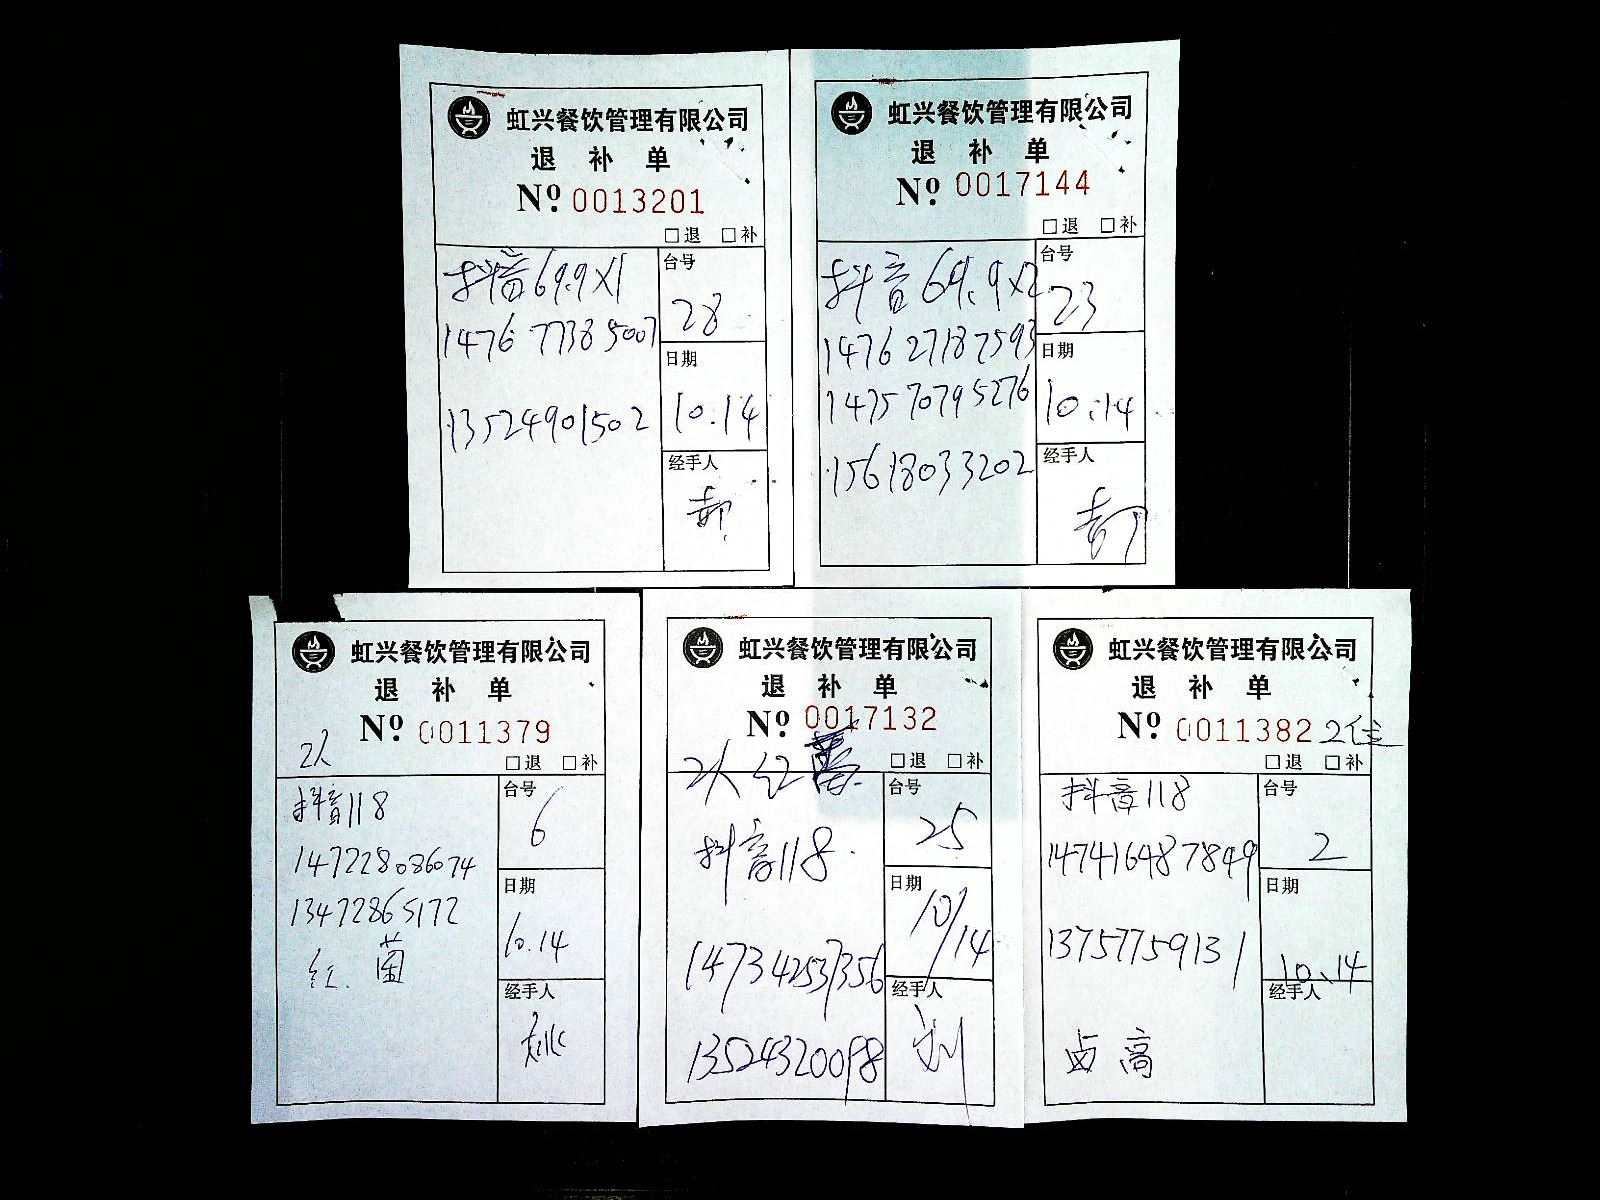 虹兴餐饮管理有限公司
退 补 单
Nº 0013201
□退 □补
抖音69.9X1
1476 7738 5007
13524901502
台号
28
日期
10.14
经手人
郝
虹兴餐饮管理有限公司
退 补 单
Nº 0017144
□退 □补
抖音69.9X2
1476 2718 7593
1475 7079 5276
15618033202
台号
23
日期
10.14
经手人
虹兴餐饮管理有限公司
退 补 单
Nº 0011379
2人
□退 □补
抖音118
147228086074
13472865172
红. 菌
台号
6
日期
10.14
经手人
姚
虹兴餐饮管理有限公司
退 补 单
Nº 0017132
□退 □补
2人 红
抖音118.
147342537356
13524320098
台号
25
日期
10/14
经手人
刘
虹兴餐饮管理有限公司
退 补 单
Nº 0011382 2位
□退 □补
抖音118
147416487849
13757759131
卤 高
台号
2
日期
10.14
经手人